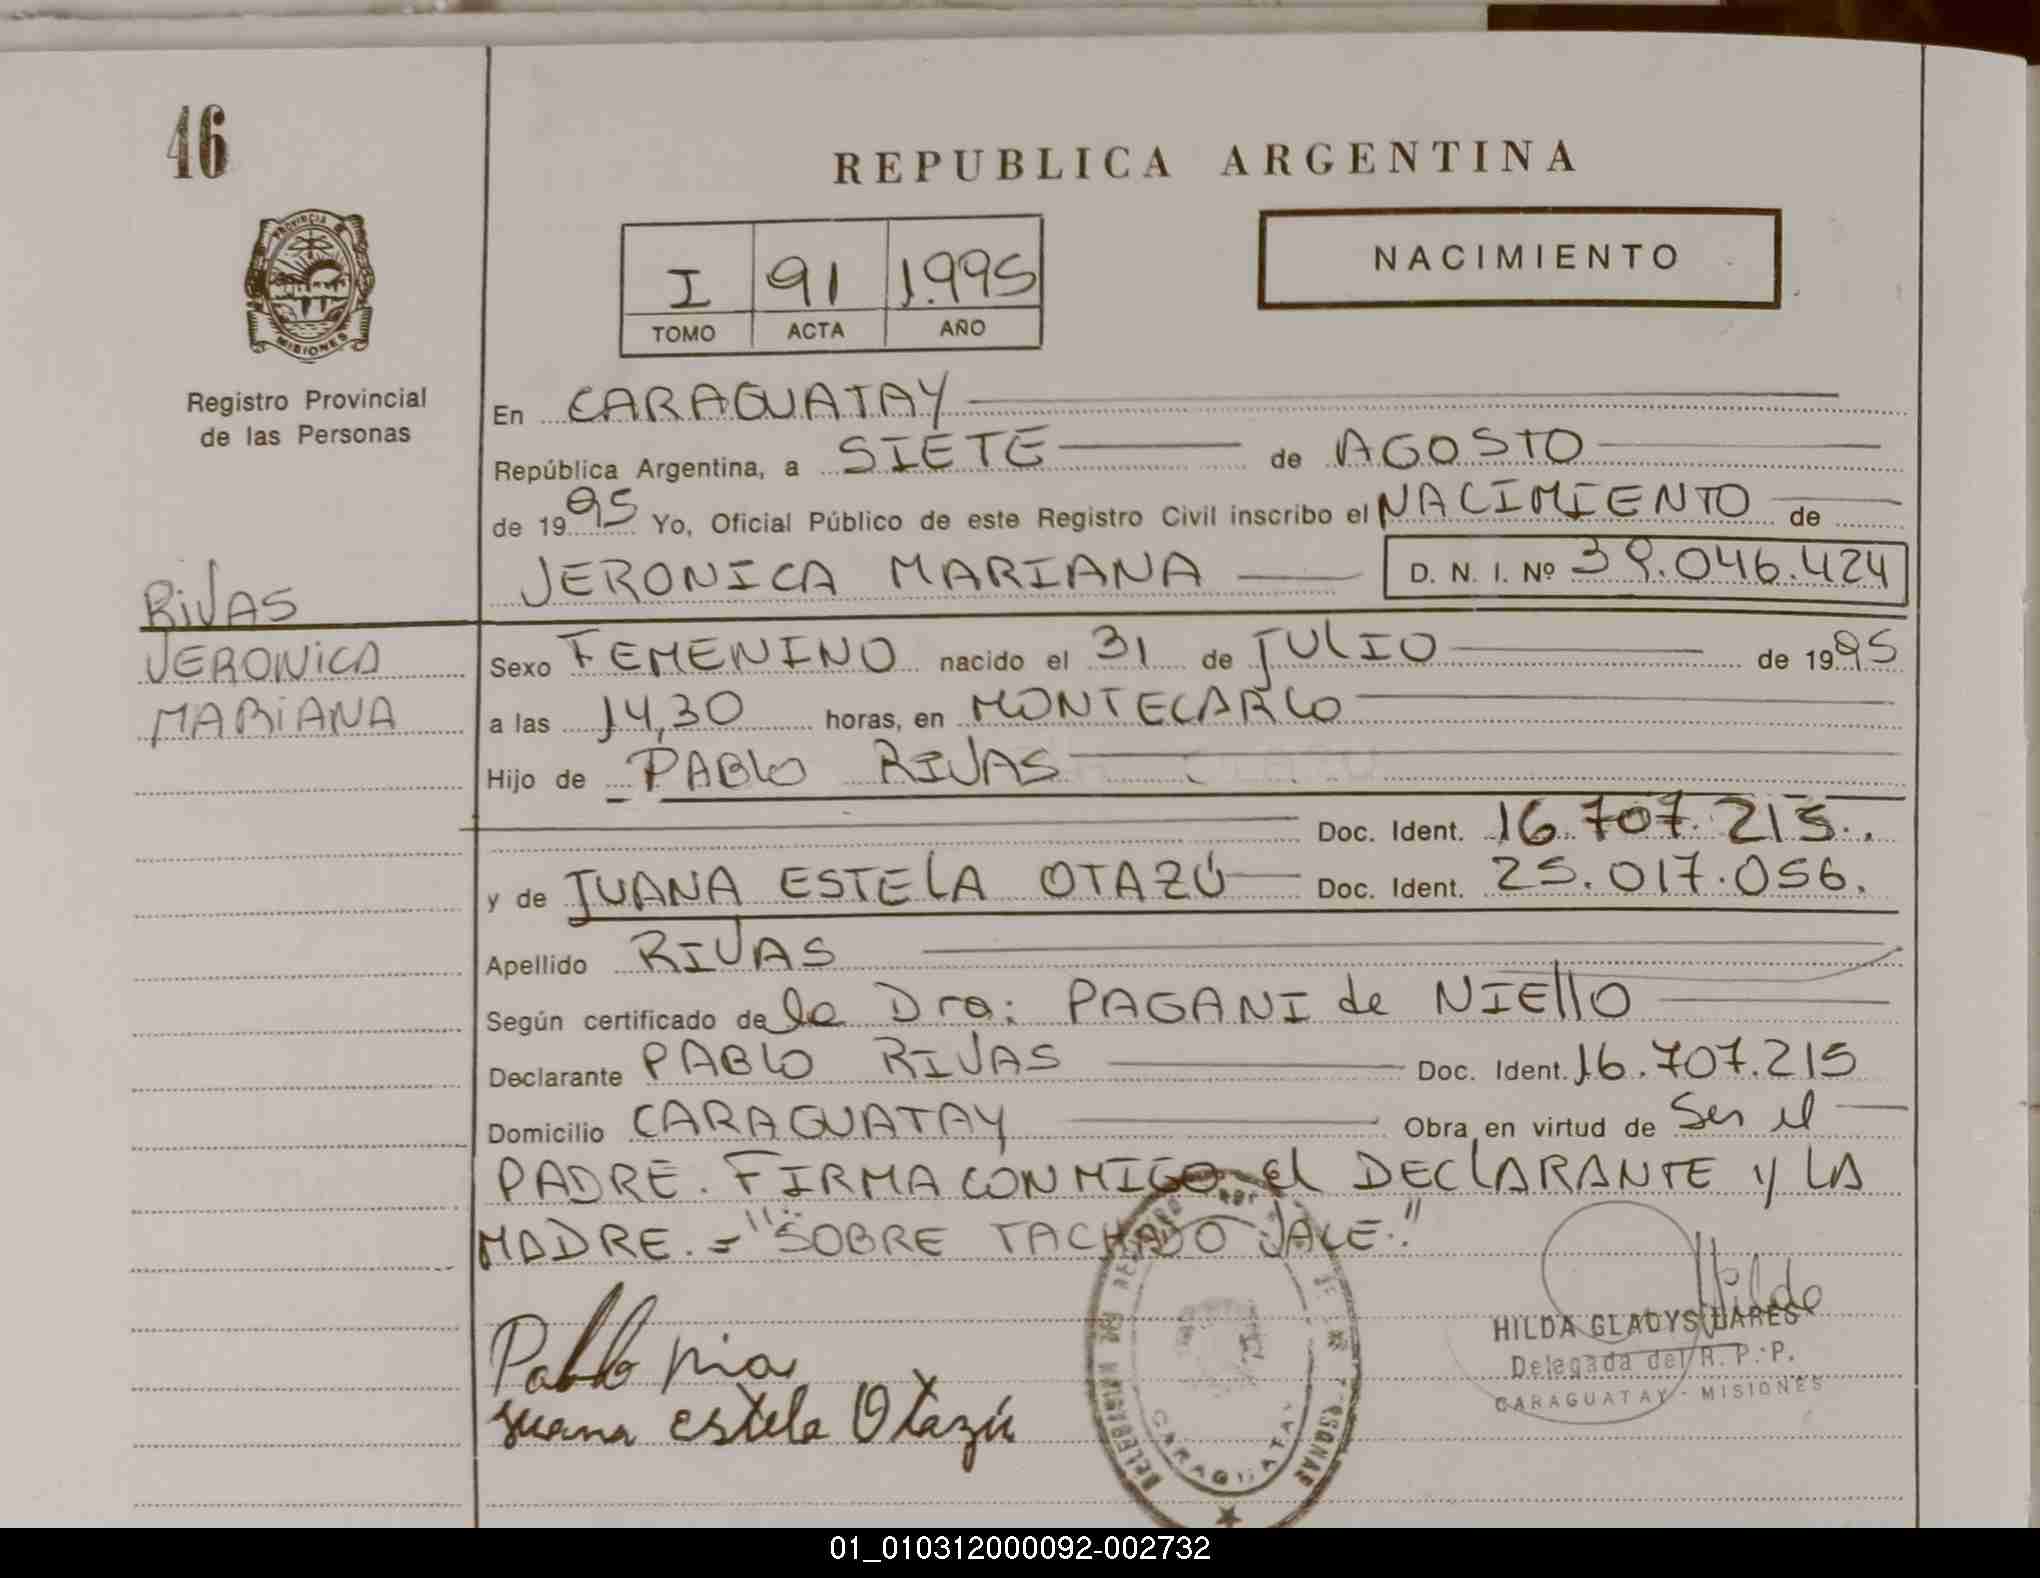 46
REPUBLICA ARGENTINA
PROVINCIA
MISIONES
I 91 1.995
TOMO ACTA AÑO
NACIMIENTO
Registro Provincial
de las Personas
En CARAGUATAY
República Argentina, a SIETE de AGOSTO
de 1995 Yo, Oficial Público de este Registro Civil inscribo el NACIMIENTO de
VERONICA MARIANA D. N. I. Nº 39.046.424
RIVAS
VERONICA
MARIANA
Sexo FEMENINO nacido el 31 de JULIO de 1995
a las 14,30 horas, en MONTECARLO
Hijo de PABLO RIVAS
Doc. Ident. 16.707.215.
y de JUANA ESTELA OTAZÚ Doc. Ident. 25.017.056.
Apellido RIVAS
Según certificado de la Dra: PAGANI de NIEllO
Declarante PABLO RIVAS Doc. Ident. 16.707.215
Domicilio CARAGUATAY Obra en virtud de Ser el
PADRE. FIRMA CONMIGO el DECLARANTE y LA
MADRE.= "SOBRE TACHADO VALE."
Pablo
Juana estela Otazú
CARAGUATAY
Hilda
HILDA GLADYS LARES
Delegada del R. P. P.
CARAGUATAY - MISIONES
01_010312000092-002732